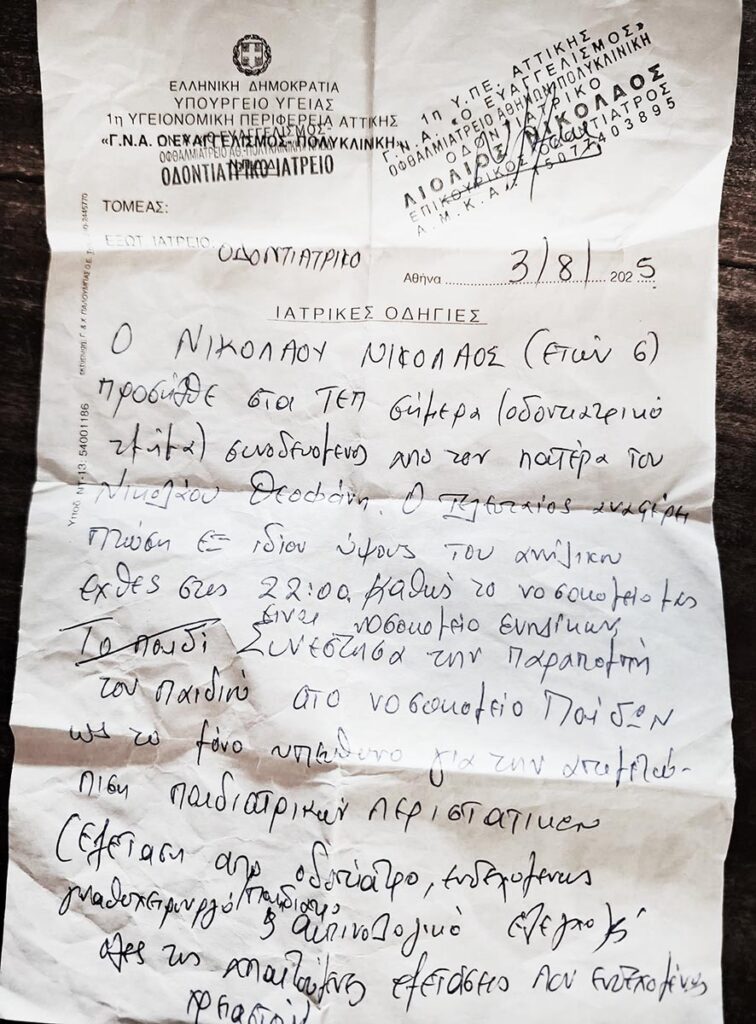 ΕΛΛΗΝΙΚΗ ΔΗΜΟΚΡΑΤΙΑ
ΥΠΟΥΡΓΕΙΟ ΥΓΕΙΑΣ
1η ΥΓΕΙΟΝΟΜΙΚΗ ΠΕΡΙΦΕΡΕΙΑ ΑΤΤΙΚΗΣ
«Γ.Ν.Α. Ο ΕΥΑΓΓΕΛΙΣΜΟΣ- ΠΟΛΥΚΛΙΝΙΚΗ»
ΟΔΟΝΤΙΑΤΡΙΚΟ ΙΑΤΡΕΙΟ
1η Υ.ΠΕ. ΑΤΤΙΚΗΣ
Γ.Ν.Α. «Ο ΕΥΑΓΓΕΛΙΣΜΟΣ»
ΟΦΘΑΛΜΙΑΤΡΕΙΟ ΑΘΗΝΩΝ ΠΟΛΥΚΛΙΝΙΚΗ
ΟΔΟΝΤΙΑΤΡΙΚΟ
ΛΙΟΛΙΟΣ ΝΙΚΟΛΑΟΣ
ΕΠΙΚΟΥΡΙΚΟΣ ΟΔΟΝΤΙΑΤΡΟΣ
Α.Μ.Κ.Α.: 15077403895
ΤΟΜΕΑΣ:
ΕΞΩΤ. ΙΑΤΡΕΙΟ: ΟΔΟΝΤΙΑΤΡΙΚΟ
Αθήνα 3/8/ 2025
ΙΑΤΡΙΚΕΣ ΟΔΗΓΙΕΣ
Ο ΝΙΚΟΛΑΟΥ ΝΙΚΟΛΑΟΣ (ετών 6)
προσήλθε στα ΤΕΠ σήμερα (οδοντιατρικό
τμήμα) συνοδευόμενος από τον πατέρα του
Νικολάου Θεοφάνη. Ο τελευταίος αναφέρει
πτώση εξ ιδίου ύψους του ανηλίκου
εχθές στις 22:00. Καθώς το νοσοκομείο μας
είναι νοσοκομείο ενηλίκων
Το παιδί Συνέστησα την παραπομπή
του παιδιού στο νοσοκομείο Παίδων
ως το μόνο υπεύθυνο για την αντιμετώ-
πιση παιδιατρικών περιστατικών
(εξέταση από οδοντίατρο, ενδεχομένως
γναθοχειρουργό/παιδίατρο
ακτινολογικό έλεγχο &
όλες τις απαιτούμενες εξετάσεις που ενδεχομένως
Υποδ. ΝΤ-13: 54001186